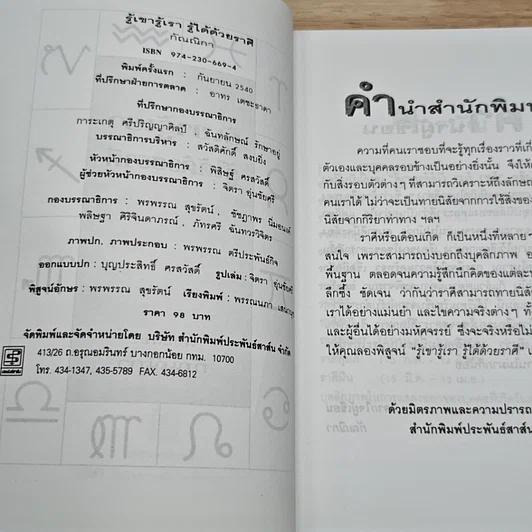 รู้เขารู้เรา รู้ได้ด้วยราศี
กัณณิกา
ISBN 974-230-669-4
พิมพ์ครั้งแรก : กันยายน 2540
ที่ปรึกษาฝ่ายการตลาด : อาทร เตชะธาดา
ที่ปรึกษากองบรรณาธิการ
การะเกตุ ศรีปริญญาศิลป์ , ฉันทลักษณ์ รักษาอยู่
บรรณาธิการบริหาร : สวัสดิศักดิ์ สงบยิ่ง
หัวหน้ากองบรรณาธิการ : พิสิษฐ์ ศรสวัสดิ์
ผู้ช่วยหัวหน้ากองบรรณาธิการ : จิตรา อุ่นชัยศรี
กองบรรณาธิการ : พรพรรณ สุขรัตน์ , ชัชฎาพร
พลิษฐา ศิริจินดาภรณ์ , ภัทรศรี ฉันทวรวิจิตร
ภาพปก, ภาพประกอบ : พรพรรณ ตรีประพันธ์กิจ
ออกแบบปก : บุญประสิทธิ์ ศรสวัสดิ์ รูปเล่ม : จิตรา
พิสูจน์อักษร : พรพรรณ สุขรัตน์ เรียงพิมพ์ : พรรณนภา
ราคา 98 บาท
จัดพิมพ์และจัดจำหน่ายโดย บริษัท สำนักพิมพ์ประพันธ์สาส์น จำกัด
413/26 ถ.อรุณอมรินทร์ บางกอกน้อย กทม. 10700
โทร. 434-1347, 435-5789 FAX. 434-6812
คำนำสำนักพิมพ์
ความที่คนเราชอบที่จะรู้ทุกเรื่องราวที่
ตัวเองและบุคคลรอบข้างเป็นอย่างยิ่งนั้น จึง
กับสิ่งรอบตัวต่างๆ ที่สามารถวิเคราะห์ถึง
คนเราได้ ไม่ว่าจะเป็นทายนิสัยจากการใช้สิ่งของ
นิสัยจากกิริยาท่าทาง ฯลฯ
ราศีหรือเดือนเกิด ก็เป็นหนึ่งที่หลาย
สนใจ เพราะสามารถบ่งบอกถึงบุคลิกภาพ
พื้นฐาน ตลอดจนความรู้สึกนึกคิดของแต่ละ
ลึกซึ้ง ชัดเจน ว่ากันว่าราศีสามารถทายนิสัย
เราได้อย่างแม่นยำ และไขความจริงต่างๆ
และผู้อื่นได้อย่างมหัศจรรย์ ซึ่งจะจริงหรือไม่
ให้คุณลองพิสูจน์ "รู้เขารู้เรา รู้ได้ด้วยราศี"
ด้วยมิตรภาพและความปรารถ
สำนักพิมพ์ประพันธ์สาส์น